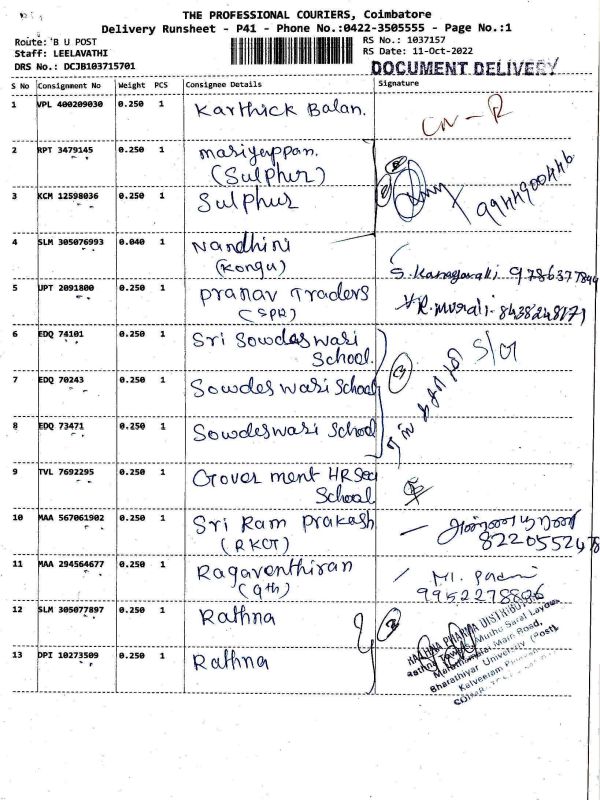 THE PROFESSIONAL COURIERS, Coimbatore
Delivery Runsheet - P41 - Phone No.:0422-3505555 - Page No.:1
Route: B U POST
Staff: LEELAVATHI
DRS No.: DCJB103715701
RS No.: 1037157
RS Date: 11-Oct-2022
DOCUMENT DELIVERY
S No Consignment No Weight PCS Consignee Details Signature
1 VPL 400209030 0.250 1 Karthick Balan. CN-R
2 RPT 3479145 0.250 1 mariyappan.
(Sulphur)
9944900446
3 KCM 12598036 0.250 1 Sulphur
4 SLM 305076993 0.040 1 Nandhini
(Kongu)
5 UPT 2091800 0.250 1 Pranav Traders
(SPR)
R.murali. 8438248171
6 EDQ 74101 0.250 1 Sri Sowdeswari
School.
S/O
7 EDQ 70243 0.250 1 Sowdeswari School
3
8 EDQ 73471 0.250 1 Sowdeswari School
9 TVL 7692295 0.250 1 Goverment HR Sec
School
10 MAA 567061902 0.250 1 Sri Ram Prakash
(RKCT)
11 MAA 294564677 0.250 1 Ragaventhiran
(9th)
12 SLM 305077897 0.250 1 Rathna
2
13 DPI 10273509 0.250 1 Rathna
PHARMA DISTRIBUTORS
Rathna Tower, Muthu Saral Layout
Maruthamalai Main Road,
Bharathiyar University (Post)